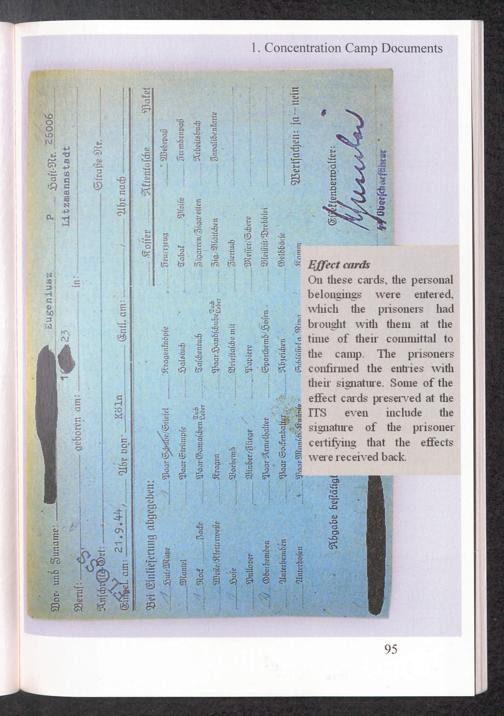 1. Concentration Camp Documents
Vor- und Zuname: Eugeniusz P - Haft-Nr. 25006
Beruf: geboren am: 23 in: Litzmannstadt
Anschrift-Ort: Straße Nr.
Eingel. am: 21.9.44, Uhr von Köln Entl. am: Uhr nach
Bei Einlieferung abgegeben: Koffer Aktentasche Paket
Hut/Mütze Paar Schuhe/Stiefel Kragenknöpfe Feuerzeug Wehrpaß
Mantel Paar Strümpfe Halstuch Tabak Pfeife Fremdenpaß
Rock Jacke Paar Gamaschen Tuch Leder Taschentuch Zigarren/Zigaretten Arbeitsbuch
Kragen Paar Handschuhe Tuch Leder Zig.-Blättchen Invalidenkarte
Hose Vorhemd Brieftasche mit
Pullover Binder/Fliege Papiere Messer/Schere
Oberhemden Paar Ärmelhalter Sporthemd/Hosen Bleistift/Drehblei
Unterhemden Paar Sockenhalter Abzeichen Geldbörse
Unterhosen Kamm Wertsachen: ja – nein
Abgabe bestätigt Effektenverwalter:
Oberscharführer
Effect cards
On these cards, the personal
belongings were entered,
which the prisoners had
brought with them at the
time of their committal to
the camp. The prisoners
confirmed the entries with
their signature. Some of the
effect cards preserved at the
ITS even include the
signature of the prisoner
certifying that the effects
were received back.
95